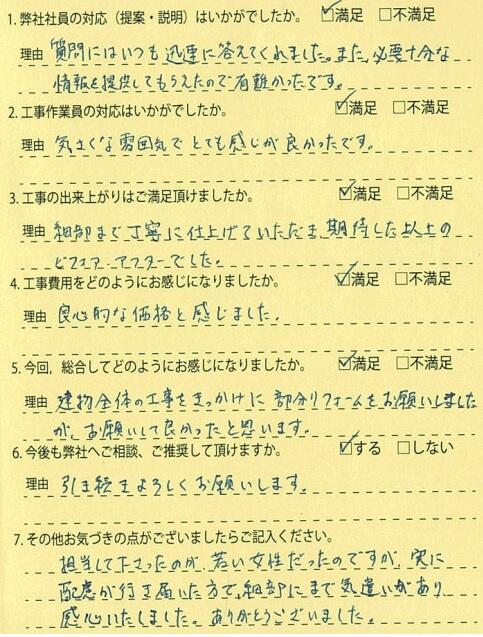 1. 弊社社員の対応（提案・説明）はいかがでしたか。 ☑満足 □不満足
理由 質問にはいつも迅速に答えてくれました。また、必要十分な
情報を提供してもらえたので有難かったです。
2. 工事作業員の対応はいかがでしたか。 ☑満足 □不満足
理由 気さくな雰囲気でとても感じが良かったです。
3. 工事の出来上がりはご満足頂けましたか。 ☑満足 □不満足
理由 細部まで丁寧に仕上げていただき、期待した以上の
ビフォア・アフターでした。
4. 工事費用をどのようにお感じになりましたか。 ☑満足 □不満足
理由 良心的な価格と感じました。
5. 今回，総合してどのようにお感じになりましたか。 ☑満足 □不満足
理由 建物全体の工事をきっかけに部分リフォームをお願いしました
が、お願いして良かったと思います。
6. 今後も弊社へご相談、ご推奨して頂けますか。 ☑する □しない
理由 引き続きよろしくお願いします。
7. その他お気づきの点がございましたらご記入ください。
担当して下さったのが、若い女性だったのですが、実に
配慮が行き届いた方で、細部にまで気遣いがあり、
感心いたしました。ありがとうございました。